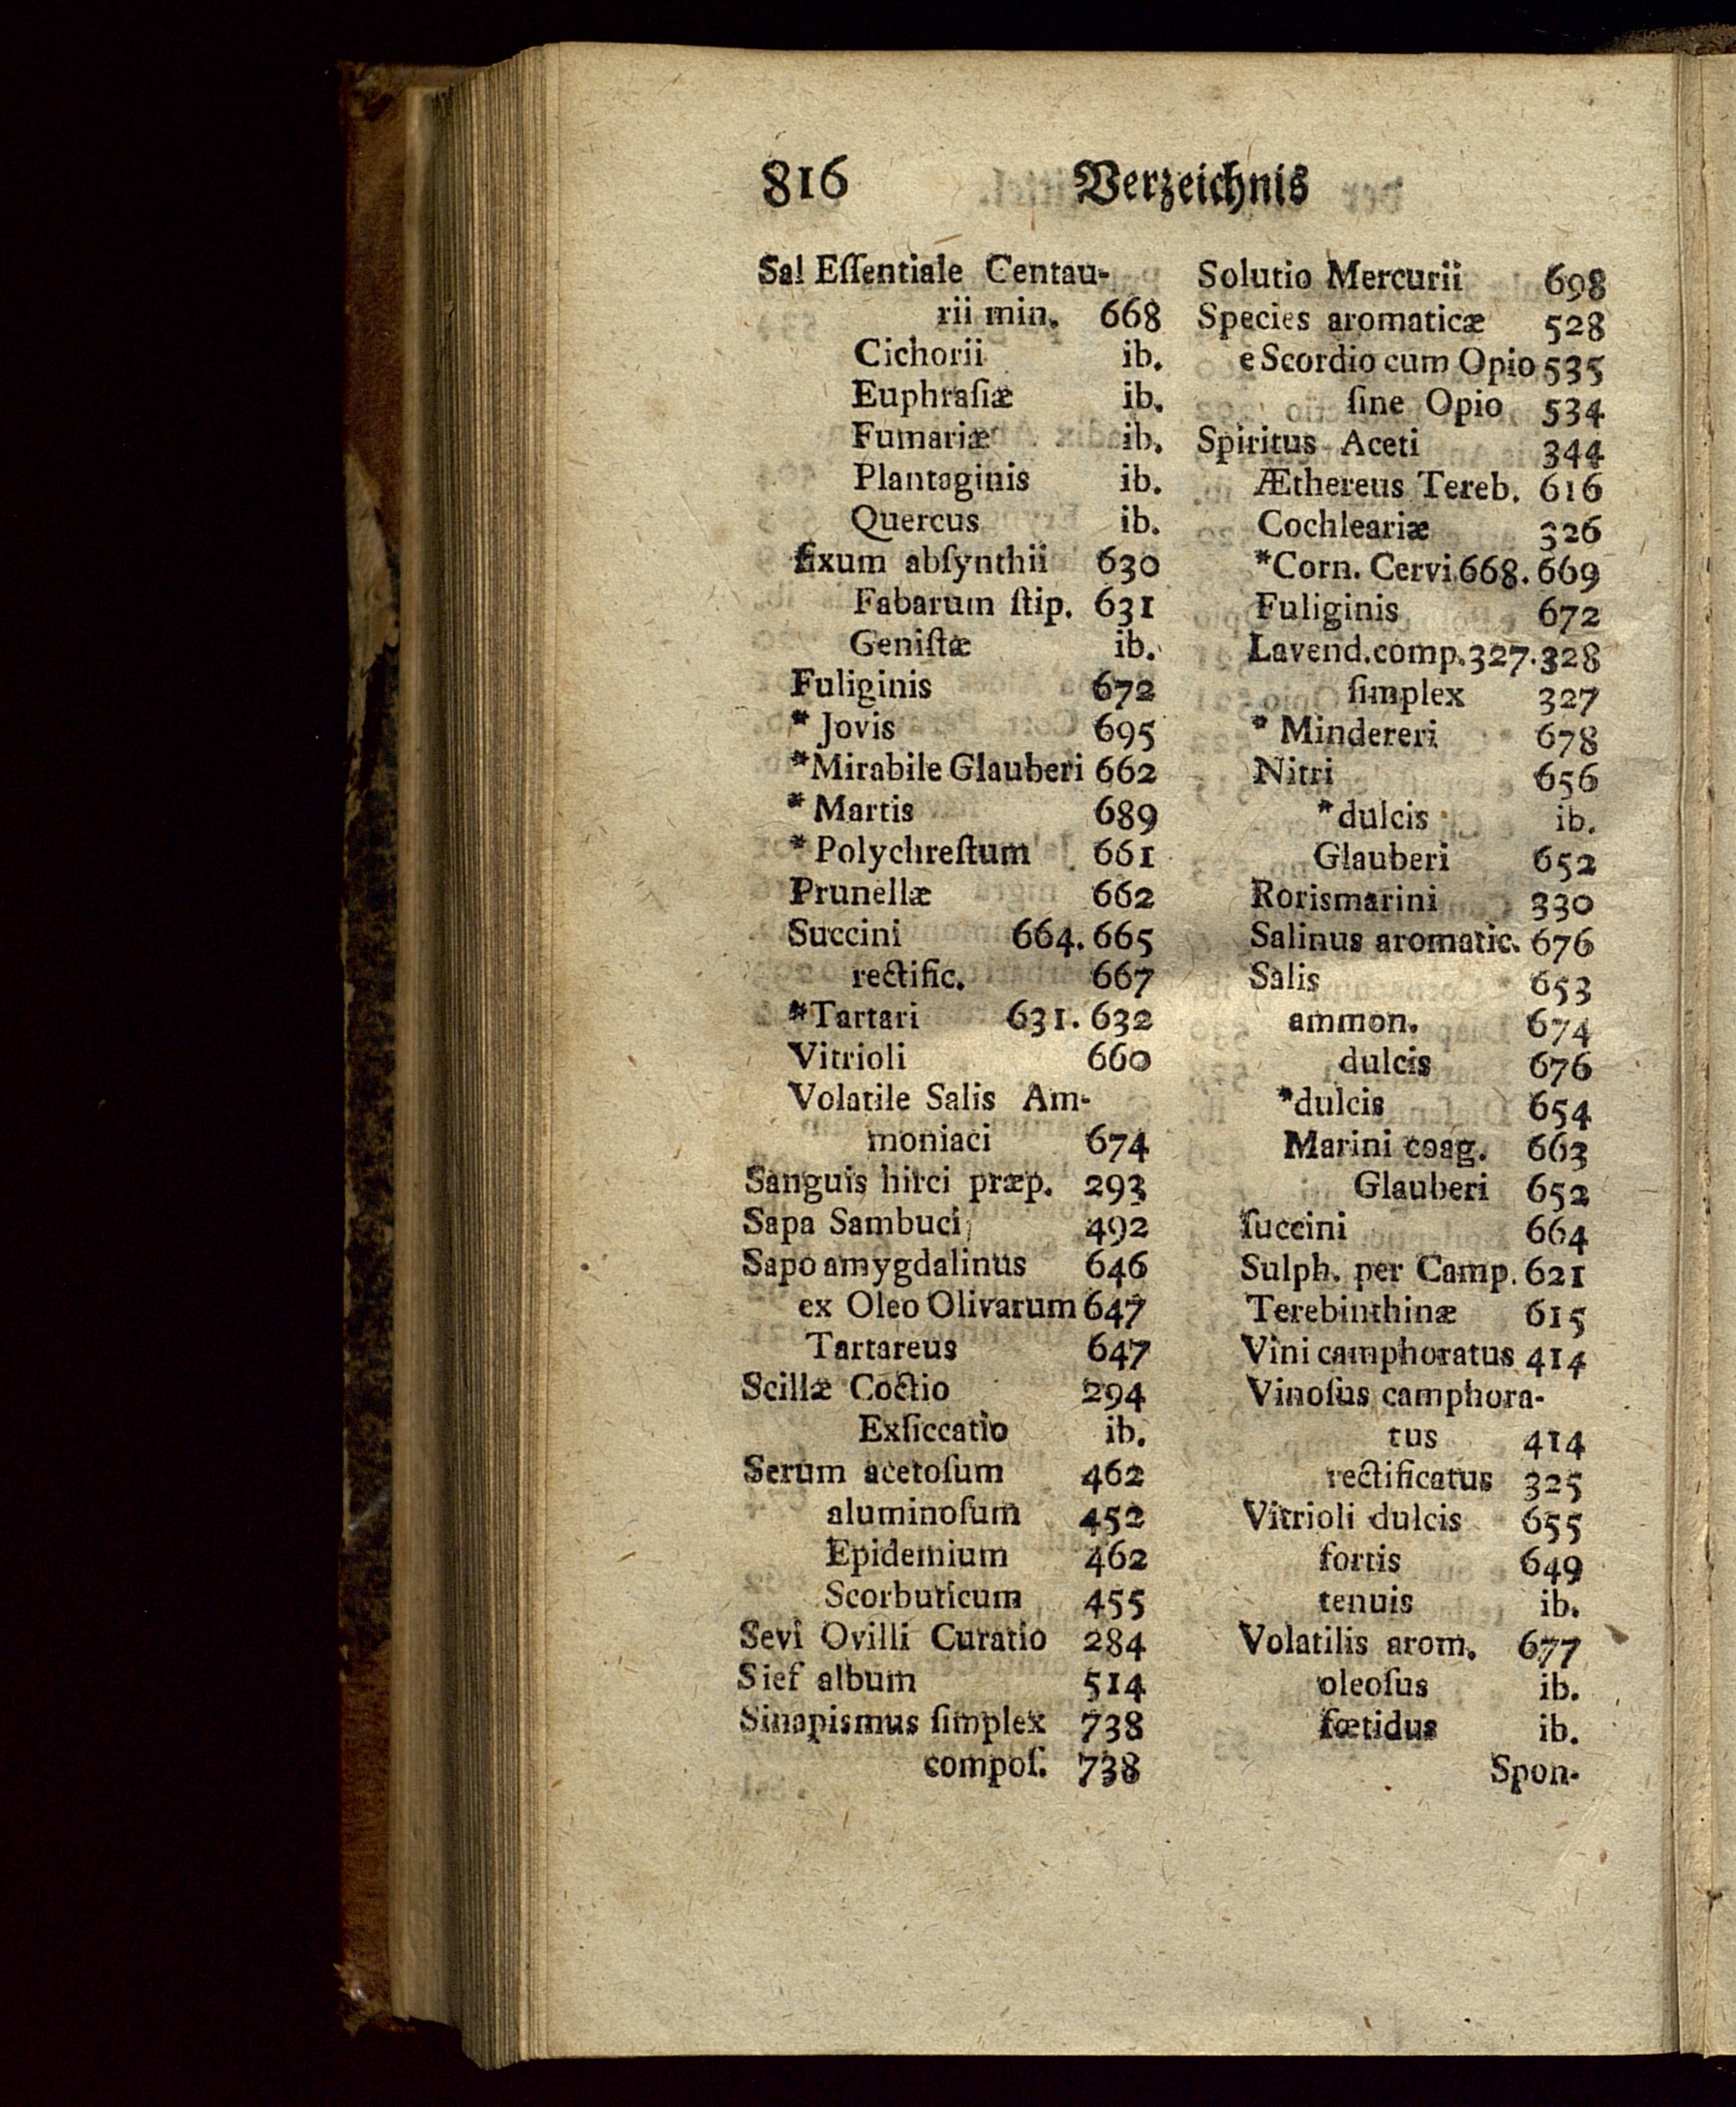 816 Verzeichnis
Sal Eſſentiale Centau-
rii min. 668
Cichorii ib.
Euphraſiæ ib.
Fumariæ ib.
Plantaginis ib.
Quercus ib.
fixum abſynthii 630
Fabarum ſtip. 631
Geniſtæ ib.
Fuliginis 672
* Jovis 695
*Mirabile Glauberi 662
* Martis 689
* Polychreſtum 661
Prunellæ 662
Succini 664. 665
rectific. 667
*Tartari 631. 632
Vitrioli 660
Volatile Salis Am-
moniaci 674
Sanguis hirci præp. 293
Sapa Sambuci 492
Sapo amygdalinus 646
ex Oleo Olivarum 647
Tartareus 647
Scillæ Coctio 294
Exſiccatio ib.
Serum acetoſum 462
aluminoſum 452
Epidemium 462
Scorbuticum 455
Sevi Ovilli Curatio 284
Sief album 514
Sinapismus ſimplex 738
compoſ. 738
Solutio Mercurii 698
Species aromaticæ 528
e Scordio cum Opio 535
ſine Opio 534
Spiritus Aceti 344
Æthereus Tereb. 616
Cochleariæ 326
*Corn. Cervi 668. 669
Fuliginis 672
Lavend. comp. 327. 328
ſimplex 327
* Mindereri 678
Nitri 656
*dulcis ib.
Glauberi 652
Rorismarini 330
Salinus aromatic. 676
Salis 653
ammon. 674
dulcis 676
*dulcis 654
Marini coag. 663
Glauberi 652
ſuccini 664
Sulph. per Camp. 621
Terebinthinæ 615
Vini camphoratus 414
Vinoſus camphora-
tus 414
rectificatus 325
Vitrioli dulcis 655
fortis 649
tenuis ib.
Volatilis arom. 677
oleoſus ib.
fœtidus ib.
Spon-